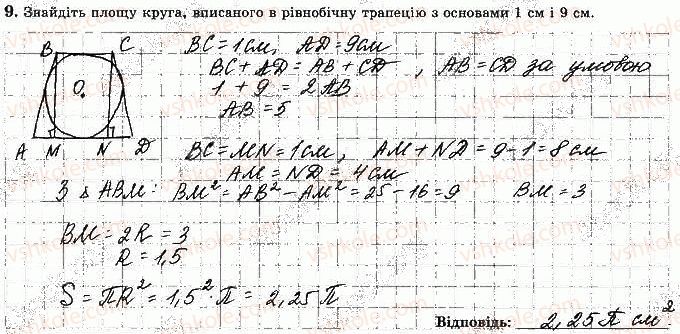 9. Знайдіть площу круга, вписаного в рівнобічну трапецію з основами 1 см і 9 см.
B C
O
A M N D
BC=1см, AD=9см
BC+AD=AB+CD, AB=CD за умовою
1+9=2AB
AB=5
BC=MN=1см, AM+ND=9-1=8см
AM=ND=4см
З ΔABM: BM²=AB²-AM²=25-16=9 BM=3
BM=2R=3
R=1,5
S=ПR²=1,5²·П=2,25П
Відповідь: 2,25П см².
vshkole.com